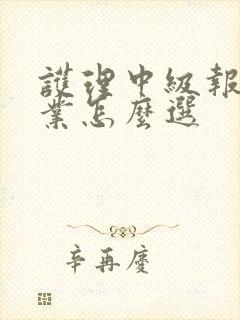 護理中級報
業怎麼選
辛再慶